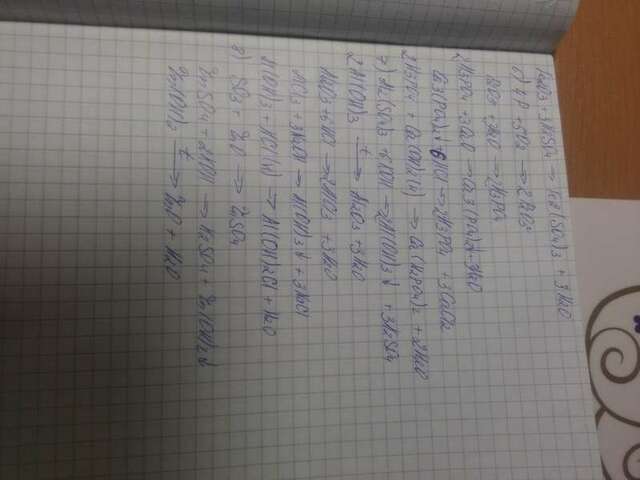 Fe2O3 + 3H2SO4 → Fe2(SO4)3 + 3H2O
6) 4P + 5O2 → 2P2O5
P2O5 + 3H2O → 2H3PO4
2H3PO4 + 3CaO → Ca3(PO4)2 + 3H2O
Ca3(PO4)2 + 6HCl → 2H3PO4 + 3CaCl2
2H3PO4 + Ca(OH)2(u) → Ca(H2PO4)2 + 2H2O
7) Al2(SO4)3 + 6KOH → 2Al(OH)3↓ + 3K2SO4
2Al(OH)3 t→ Al2O3 + 3H2O
Al2O3 + 6HCl → 2AlCl3 + 3H2O
AlCl3 + 3KOH → Al(OH)3↓ + 3KCl
Al(OH)3 + HCl(u) → Al(OH)2Cl + H2O
8) SO3 + ZnO → ZnSO4
ZnSO4 + 2KOH → K2SO4 + Zn(OH)2↓
Zn(OH)2 t→ ZnO + H2O